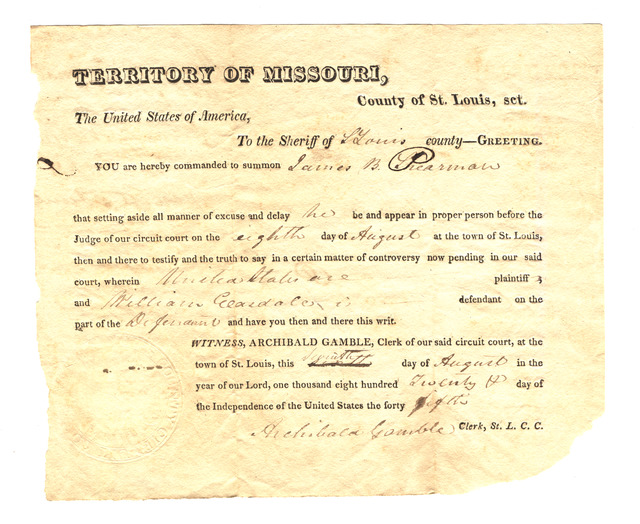 TERRITORY OF MISSOURI,
County of St. Louis, sct.
The United States of America,
To the Sheriff of St Louis county—GREETING.
YOU are hereby commanded to summon James B. Pearman
that setting aside all manner of excuse and delay he be and appear in proper person before the
Judge of our circuit court on the eighth day of August at the town of St. Louis,
then and there to testify and the truth to say in a certain matter of controversy now pending in our said
court, wherein United States are plaintiff s
and William defendant on the
part of the Defendant and have you then and there this writ.
WITNESS, ARCHIBALD GAMBLE, Clerk of our said circuit court, at the
town of St. Louis, this day of August in the
year of our Lord, one thousand eight hundred Twenty & day of
the Independence of the United States the forty fifth
Archibald Gamble Clerk, St. L. C. C.